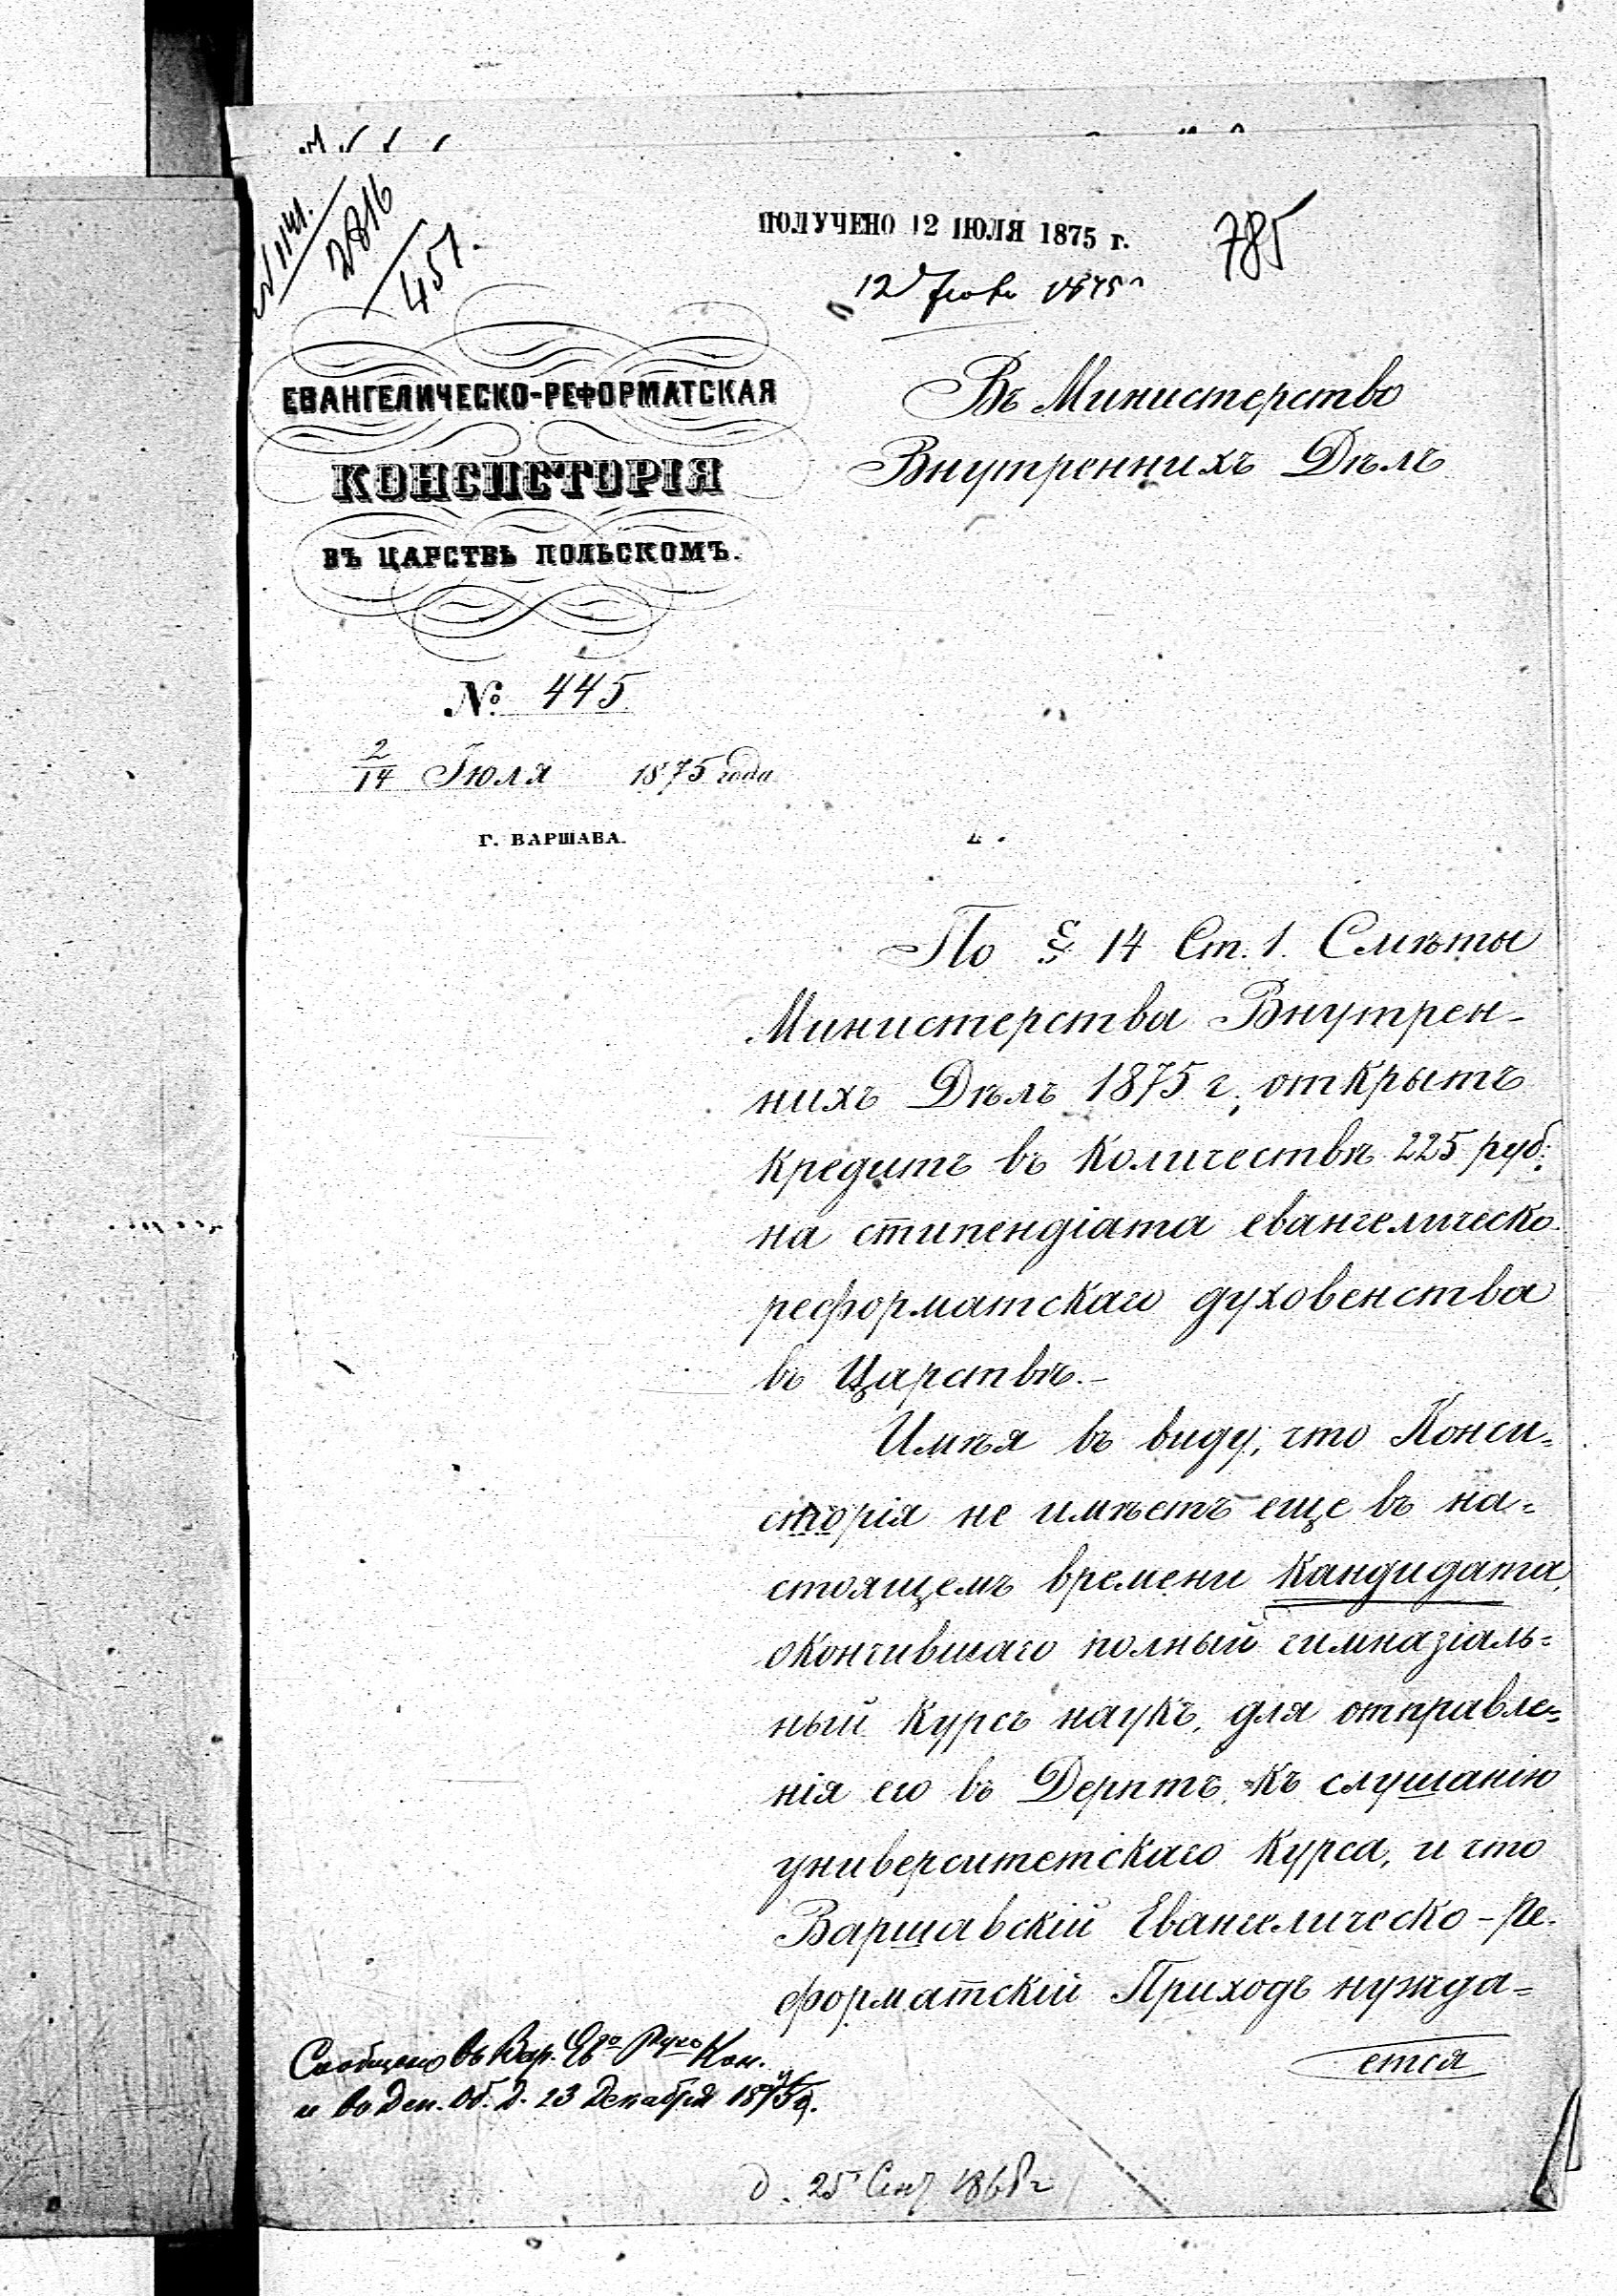 № 1141.
2816
451.
ПОЛУЧЕНО 12 ІЮЛЯ 1875 г.
785
12 1875
ЕВАНГЕЛИЧЕСКО-РЕФОРМАТСКАЯ
КОНСИСТОРІЯ
ВЪ ЦАРСТВѢ ПОЛЬСКОМЪ.
№ 445
2/14 Іюля 1875 года
Г. ВАРШАВА.
Въ Министерство
Внутреннихъ Дѣлъ
По § 14 Ст. 1. Смѣты
Министерства Внутрен-
нихъ Дѣлъ 1875 г. открытъ
кредитъ въ количествѣ 225 руб.
на стипендіата евангелическо
реформатскаго духовенства
въ Царствѣ.-
Имѣя въ виду, что Конси=
сторія не имѣетъ еще въ на=
стоящемъ времени кандидата,
окончившаго полный гимназіаль=
ный курсъ наукъ, для отправле=
нія его въ Дерптъ, къ слушанію
университетскаго курса, и что
Варшавскій Евангелическо-Ре-
форматскій Приходъ нужда=
ется
Сообщено въ Вар. Кон.
и во Деп. Об. Д. 23 Декабря 1875 г.
25 Сен 1868 г